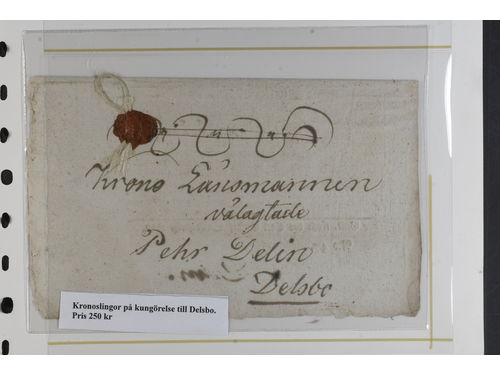 Krono Länsmannen
välagtade
Pehr Delin
Delsbo
Kronoslingor på kungörelse till Delsbo.
Pris 250 kr